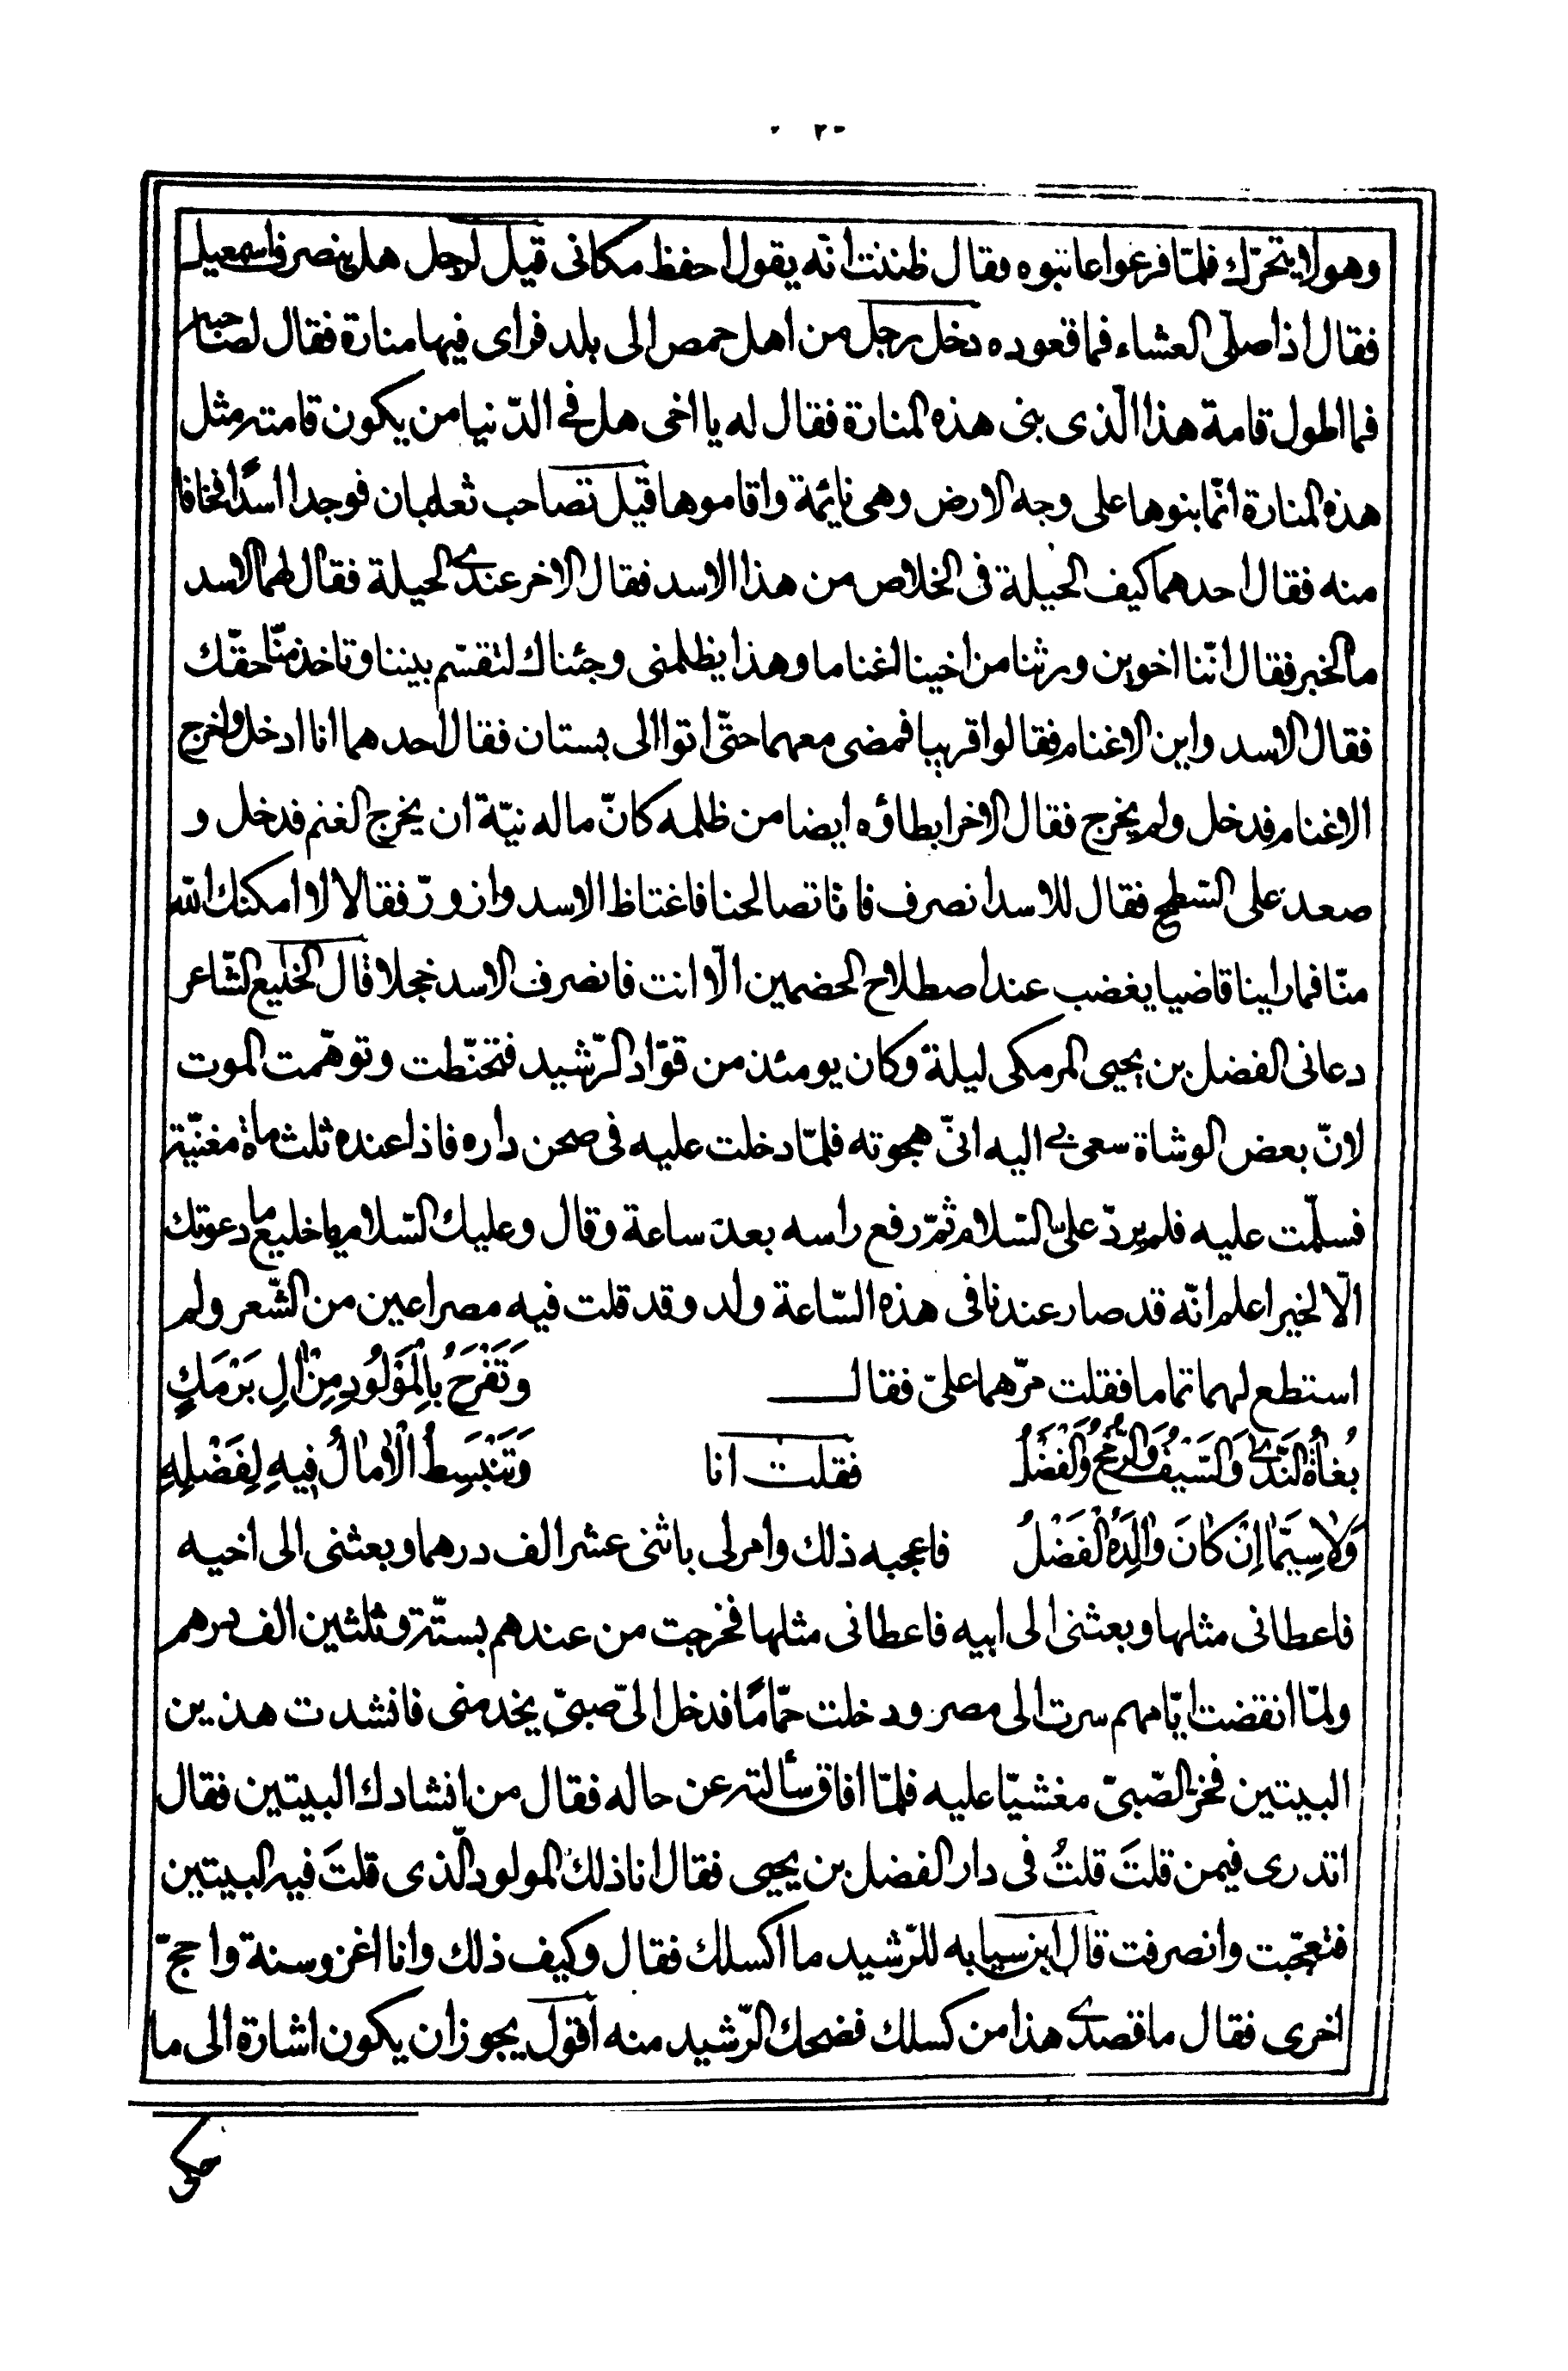 وهو لا يتحرّك فلمّا فرغوا عاتبوه فقال ظننت انّه يقول احفظ مكانى قيل لرجل هل ينصرف اسمعيل
فقال اذا صلّى العشاء فما قعوده دخل رجل من اهل حمص الى بلد فراى فيها منارة فقال لصاحبه
فما اطول قامة هذا الّذى بنى هذه المنارة فقال له يا اخى هل فى الدّنيا من يكون قامته مثل
هذه المنارة انّما بنوها على وجه الارض وهى نائمة واقاموها قيل تصاحب ثعلبان فوجدا اسدًا فخافا
منه فقال احدهما كيف الحيلة فى الخلاص من هذا الاسد فقال الاخر عندى الحيلة فقال لهما الاسد
ما الخبر فقال انّنا اخوين ورثنا من اخينا اغناما وهذا يظلمنى وجئناك لتقسّم بيننا وتاخذ منّا حقّك
فقال الاسد واين الاغنام فقالوا قريبا فمضى معهما حتّى اتوا الى بستان فقال احدهما انا ادخل واخرج
الاغنام فدخل ولم يخرج فقال الاخر ابطاؤه ايضا من ظلمه كانّ ما له نيّة ان يخرج الغنم فدخل و
صعد على السّطح فقال للاسد انصرف فاتّا تصالحنا فاغتاظ الاسد وازورّ فقالا لا امكنك اللّه
منّا فما راينا قاضيا يغضب عند اصطلاح الخصمين الّا انت فانصرف الاسد خجلا قال الخليع الشّاعر
دعانى الفضل بن يحيى البرمكى ليلة وكان يومئذ من قوّاد الرّشيد فتحنّطت وتوهّمت الموت
لانّ بعض الوشاة سعى بى اليه انّى هجوته فلمّا دخلت عليه فى صحن داره فاذا عنده ثلث ماة مغنّية
فسلّمت عليه فلم يردّ علىّ السّلام ثمّ رفع راسه بعد ساعة وقال وعليك السّلام يا خليع ما دعوتك
الّا لخير اعلم انّه قد صار عندنا فى هذه السّاعة ولد وقد قلت فيه مصراعين من الشّعر ولم
استطع لهما تماما فقلت مرّهما علىّ فقال وَتَفْرَحُ بِالْمَوْلُودِ مِنْ الِ بَرْمَكٍ
بُغاةُ النَّدى وَالسَّيْفُ وَالرُّمْحُ وَالْفَضْلُ فقلت انا وَتَنْبَسِطُ الْامالُ فِيهِ لِفَضْلِهِ
وَلاسِيَّما اِنْ كانَ والِدَهُ الْفَضْلُ فاعجبه ذلك وامر لى باثنى عشر الف درهما وبعثنى الى اخيه
فاعطانى مثلها وبعثنى الى ابيه فاعطانى مثلها فخرجت من عندهم بستّة وثلثين الف درهم
ولمّا انقضت ايّامهم سرت الى مصر ودخلت حمّامًا فدخل الىّ صبىّ يخدمنى فانشدت هذين
البيتين فخرّ الصّبىّ مغشيّا عليه فلمّا افاق سألته عن حاله فقال من انشادك البيتين فقال
اتدرى فيمن قلتَ قلتُ فى دار الفضل بن يحيى فقال انا ذلك المولود الّذى قلتَ فيه البيتين
فتعجّبت وانصرفت قال ابن سيابه للرّشيد ما اكسلك فقال وكيف ذلك وانا اغزو سنة واحجّ
اخرى فقال ما قصدى هذا من كسلك فضحك الرّشيد منه اقول يجوز ان يكون اشارة الى ما